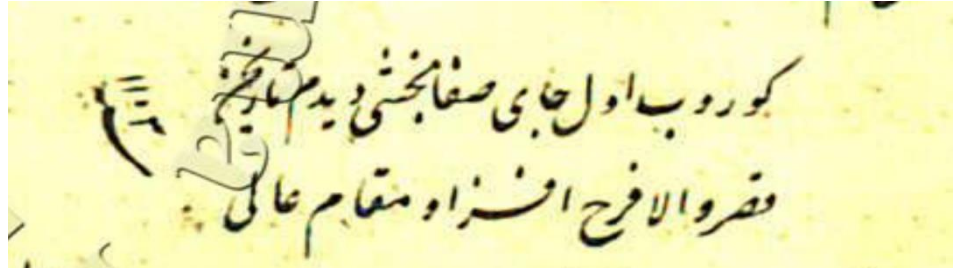 كوروب اول جاى صفابخشى ديدم تاريخن
قصر والا فرح افزا و مقام عالى